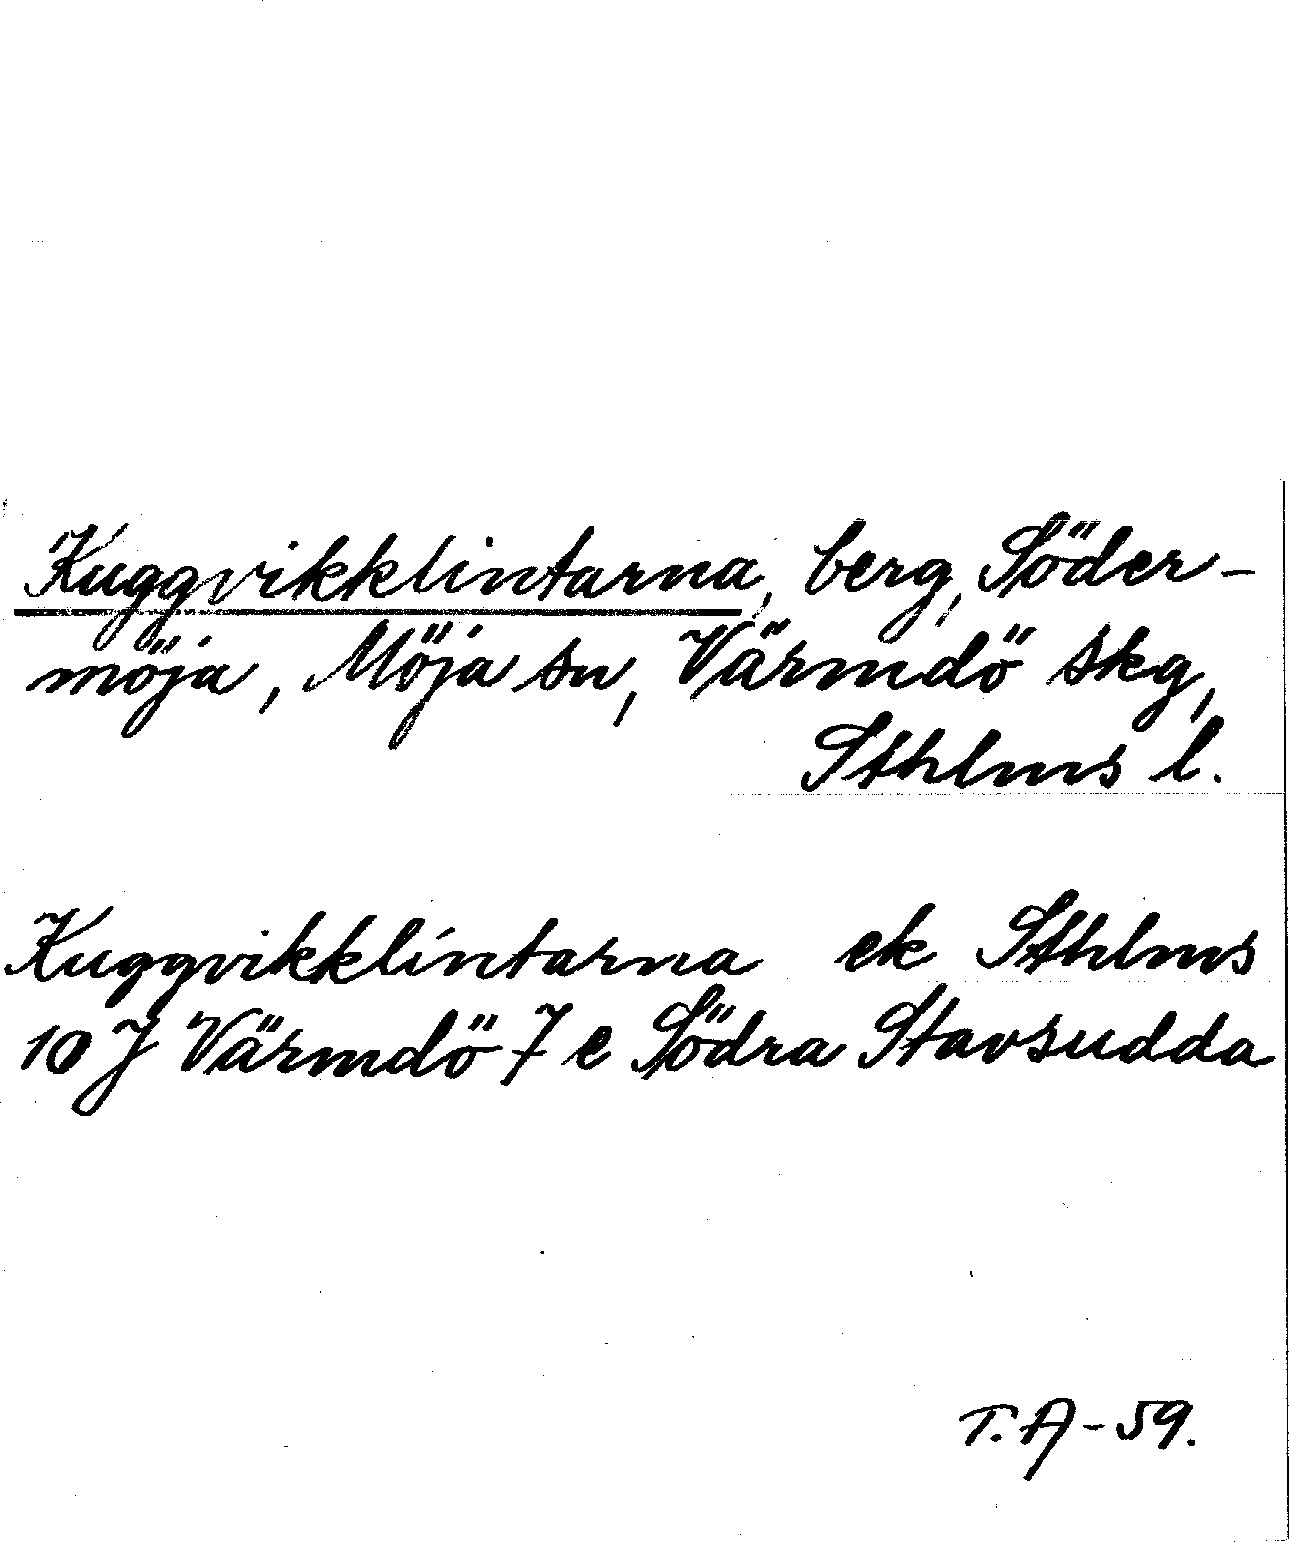 Kuggvikklintarna, berg, Söder-
möja, Möja sn, Värmdö skg,
Sthlms l.
Kuggvikklintarna ek Sthlms
10 J Värmdö 7 e Södra Stavsudda
T.A-59.